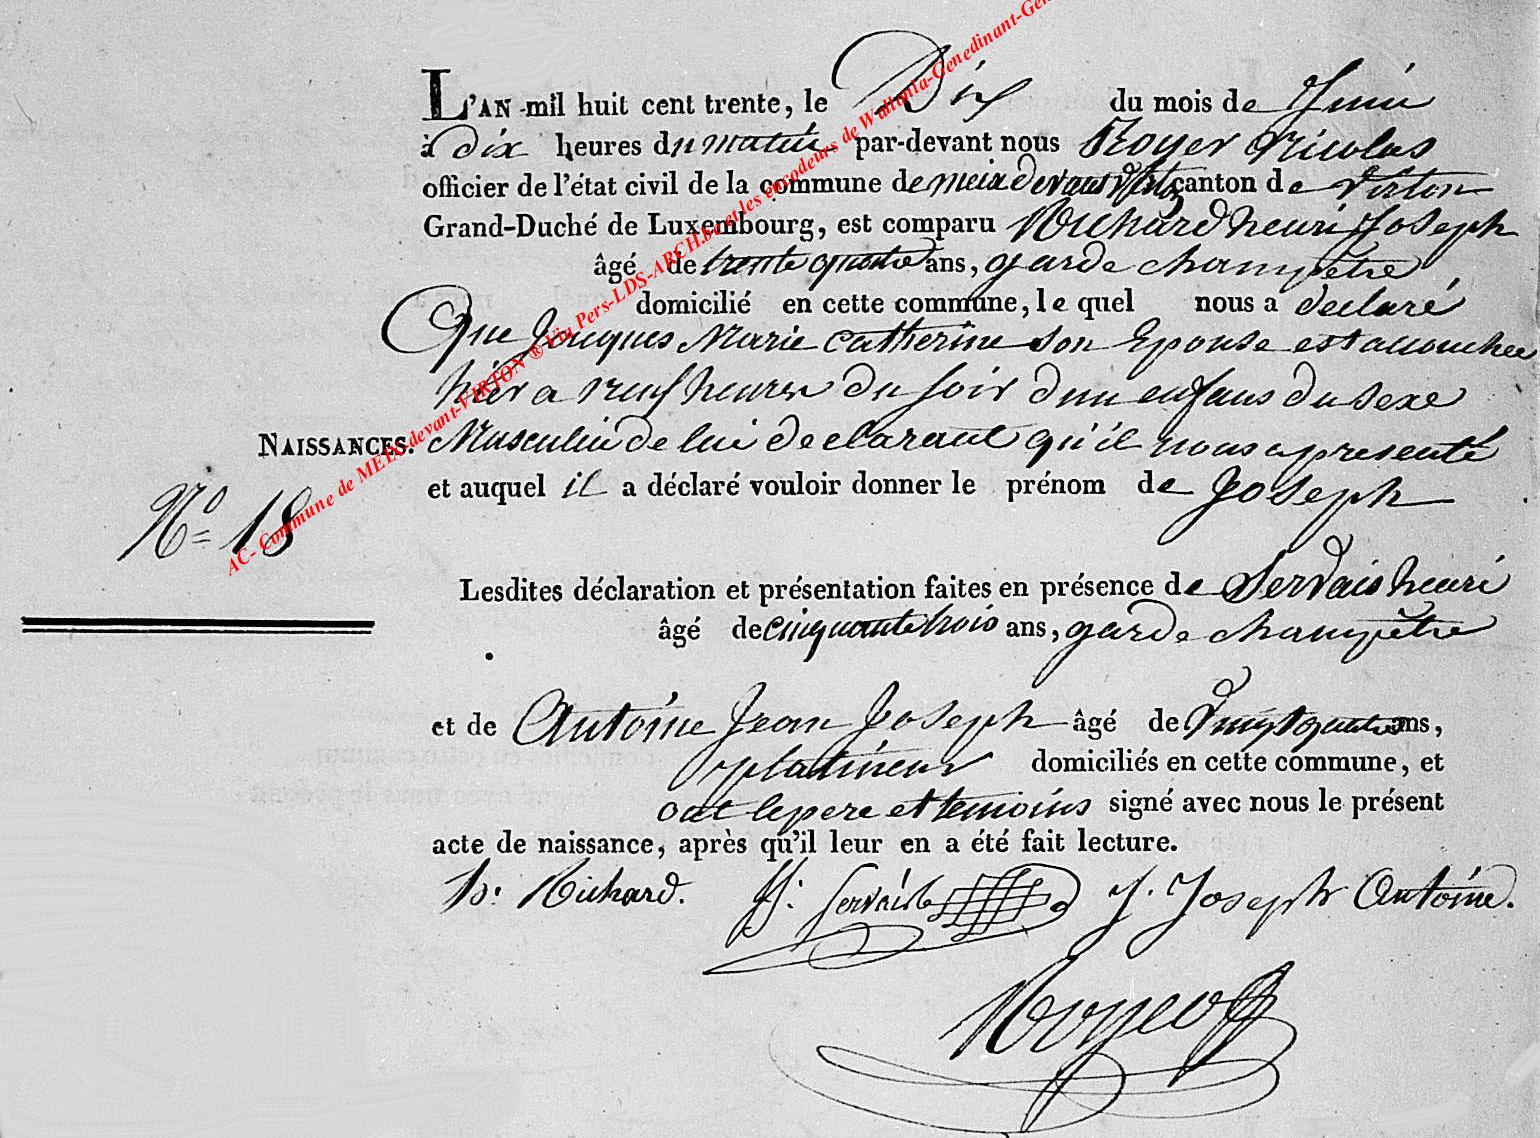 L'AN mil huit cent trente, le Dix du mois de Juin
à dix heures du matin par-devant nous Royer Nicolas
officier de l'état civil de la commune de meix devant Virton canton de Virton
Grand-Duché de Luxembourg, est comparu Richard henri Joseph
âgé de trente quatre ans, garde champêtre
domicilié en cette commune, le quel nous a declaré
Que Jacques Marie Catherine son Epouse est accouchee
hier a neuf heures du soir d'un enfans du sexe
NAISSANCES. Masculin de lui declarant qu'il nous a presenté
et auquel il a déclaré vouloir donner le prénom de Joseph
No 18
Lesdites déclaration et présentation faites en présence de Servais henri
âgé de cinquante trois ans, garde champêtre
et de Antoine Jean Joseph âgé de Vingt quatre ans,
platineur domiciliés en cette commune, et
ont le pere et temoins signé avec nous le présent
acte de naissance, après qu'il leur en a été fait lecture.
h. Richard. H. Servais J. Joseph Antoine.
Royer
AC- Commune de MEIX-devant-VIRTON ® Via Pers-LDS-ARCH.be et les encodeurs de Wallonia-Genedinant-Gen